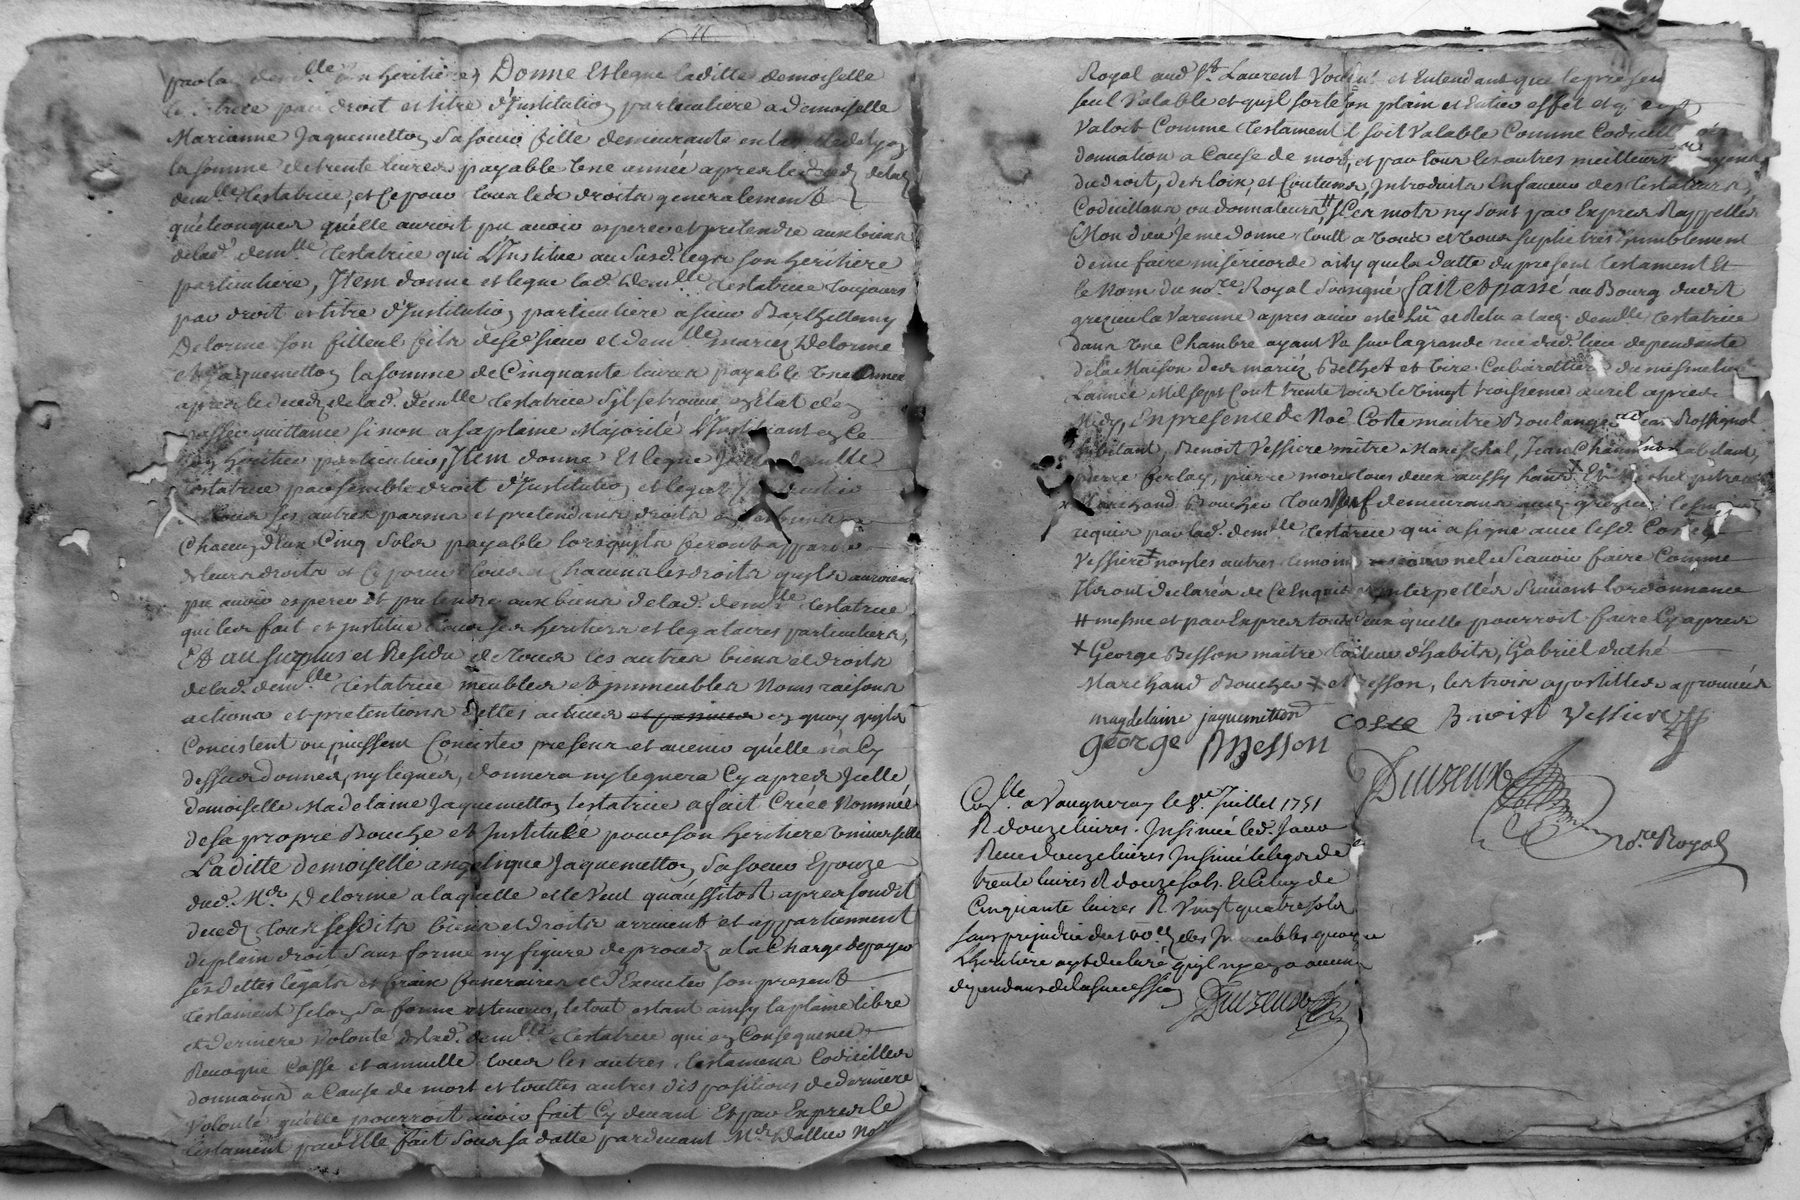 par lad. dem.lle son heritiere, Donne Et legue laditte demoiselle
testatrice par droit et titre d'Institution particuliere a demoiselle
Marianne Jaquemetton sa soeur fille demeurante en la ville de Lyon
la somme de trente livres payable une année apres le deceds de lad.
dem.lle testatrice, et ce pour tous les droits generalement
quelconques qu'elle auroit pu avoir esperer et pretendre aux biens
de lad. dem.lle testatrice qui L'Institue au susd. legat son heritiere
particuliere, Item donne et legue lad. dem.lle testatrice toujours
par droit et titre d'Institution particuliere a sieur Barthellemy
Delorme son filleul fils desd. sieur et dem.lle mariez Delorme
et Jaquemetton la somme de Cinquante livres payable une année
apres le deceds de lad. dem.lle testatrice s'il se trouve en Etat d'en
passer quittance sinon a sa plaine Majorité L'Instituant en ce
son heritier particulier, Item donne Et legue Jcelle dem.lle
testatrice par semblable droit d'Institution et legat
a tous ses autres parens et pretendans droits a
Chacun d'eux Cinq sols payable lorsqu'ils feront apparoir
de leurs droits et ce pour tous et Chacuns les droits qu'ils auroient
pu avoir esperer et pretendre aux biens de lad. dem.lle testatrice
qui les fait et institue tous ses heritiers et legataires particuliers,
Et au surplus et Residu de tous les autres biens et droits
de lad. dem.lle testatrice meubles et immeubles Noms raisons
actions et pretentions dettes actives et passives en quoy qu'ils
Concistent ou puissent Concister presens et avenir qu'elle n'a Cy
dessus donnés, ny legués, donnera ny leguera Cy apres Jcelle
demoiselle Madelaine Jaquemetton testatrice a fait Créée Nommée
de sa propre Bouche et Instituée pour son heritiere universelle
Laditte demoiselle angelique Jaquemetton sa soeur Epouze
dud. Mr. Delorme a laquelle elle veut qu'aussitost apres sondit
deceds tous sesdits biens et droits arrivent et appartiennent
de plein droit sans forme ny figure de procedz a la Charge de payer
ses dettes legats et fraix funeraires et d'Executer son present
testament selon sa forme et teneur, le tout estant ainsy la plaine libre
et derniere volonté de lad. dem.lle testatrice qui en Consequence
Revoque Casse et annulle tous les autres testamens Codicilles
donnaons a Cause de mort et touttes autres dispositions de derniere
volonté qu'elle pourroit avoir fait Cy devant Et par Exprès le
testament par Elle fait sous sa datte pardevant Me. Dallier Nore
Royal aud. St. Laurent et Entendant que le present
seul valable et qu'il sorte son plain et Entier effet et
valoit Comme testament soit valable Comme Codicille
donnation a Cause de mort, et par tous les autres meilleurs moyens
du droit, des loix, et Coutumes, Introduits En faveur des testateurs,
Codicillans ou donnateurs, # Les mots ny sont par Exprès Rappellés
Mon dieu Je me donne tout a vous et vous suplie tres humblement
de me faire misericorde ainsy que la datte du present testament Et
le Nom du nore. Royal Soussigné fait et passé au Bourg dudit
grezieu la Varenne apres avoir esté Lû et Relu a lad. demlle. testatrice
dans une Chambre ayant vue sur la grande rue dud. lieu dependante
de la Maison des mariéz Bethet et Tire Cabarettiers du mesme lieu
L'année Mil sept Cent trente trois le vingt troisieme avril apres
Midy, En presence de Noé Coste maitre Boulanger Jean Rossignol
habitant, Benoit Vessiere maitre Mareschal, Jean habitant,
pierre ferlay, pierre
Marchand Boucher tous demeurans aud. grezieu
requis par lad. dem.lle testatrice qui a signé avec lesd. Coste et
Vessiere + non les autres temoins pour ne le Scavoir faire Comme
Ils ont declarés de Ce Enquis et Interpellés Suivant L'ordonnance
# mesme et par Exprès tous Ceux qu'elle pourroit faire Cy apres
+ George Besson maitre tailleur d'habits, Gabriel
Marchand Boucher + et Besson, les trois apostilles approuvées
magdelaine jaquemetton coste Benoist Vessiere
george Besson
Duvzeux
nore. Royal
Con.lle a Vaugneray le 8.e Juillet 1751
R. douze livres. Insinué led. Jour
Receu douze livres Insinué le legat de
trente livres R. douze sols. Et Celuy de
Cinquante livres R. Vingt quatre sols
sans prejudice du 100.e des Immeubles quoyque
L'heritiere ayt declaré qu'il n'y en a aucuns
dependans de la succession
Duvzeux